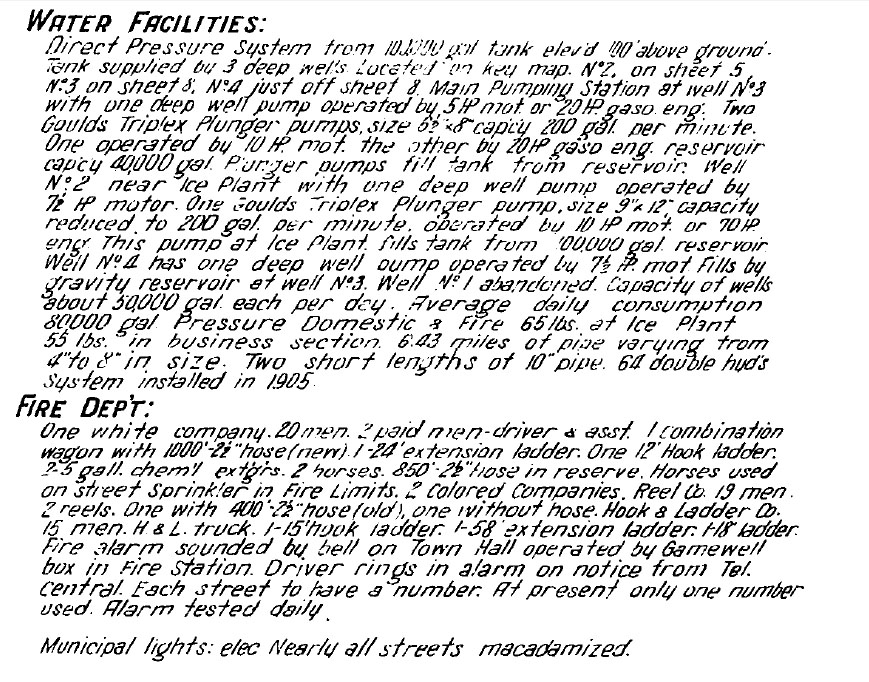 WATER FACILITIES:
Direct Pressure System from gal tank elev'd 100' above ground.
Tank supplied by 3 deep wells. Located on key map. Nº2, on sheet 5,
Nº3 on sheet 8, Nº4 just off sheet 8. Main Pumping Station at well Nº3
with one deep well pump operated by 5 HP mot or 20 HP gaso. eng. Two
Goulds Triplex Plunger pumps, size 6½"x8" cap'cy 200 gal. per minute.
One operated by 10 HP mot. the other by 20 HP gaso eng. reservoir
cap'cy 40,000 gal. Plunger pumps fill tank from reservoir. Well
Nº2 near Ice Plant with one deep well pump operated by
7½ HP motor. One Goulds Triplex Plunger pump, size 9"x 12", capacity
reduced to 200 gal. per minute, operated by 10 HP mot. or HP
eng. This pump at Ice Plant fills tank from 100,000 gal. reservoir
Well Nº4 has one deep well pump operated by 7½ HP. mot Fills by
gravity reservoir at well Nº3. Well Nº1 abandoned. Capacity of wells
about 50,000 gal. each per day. Average daily consumption
80,000 gal. Pressure Domestic & Fire 65 lbs. at Ice Plant
55 lbs. in business section. 6.43 miles of pipe varying from
4" to 8" in size. Two short lengths of 10" pipe. 64 double hyd's
System installed in 1905.
FIRE DEP'T:
One white company. 20 men. 2 paid men-driver & asst. 1 combination
wagon with 1000'-2½" hose (new) 1-24' extension ladder. One 12' Hook ladder.
2-5 gall. chem'l ext'g'rs. 2 horses. 850'-2½" hose in reserve. Horses used
on street Sprinkler in Fire Limits. 2 Colored Companies. Reel Co. 19 men.
2 reels. One with 400'-2½" hose (old), one without hose. Hook & Ladder Co.
15 men. H & L. truck. 1-15' hook ladder. 1-58' extension ladder. 1-18' ladder.
Fire alarm sounded by bell on Town Hall operated by Gamewell
box in Fire Station. Driver rings in alarm on notice from Tel.
Central. Each street to have a number. At present only one number
used. Alarm tested daily.
Municipal lights: elec Nearly all streets macadamized.